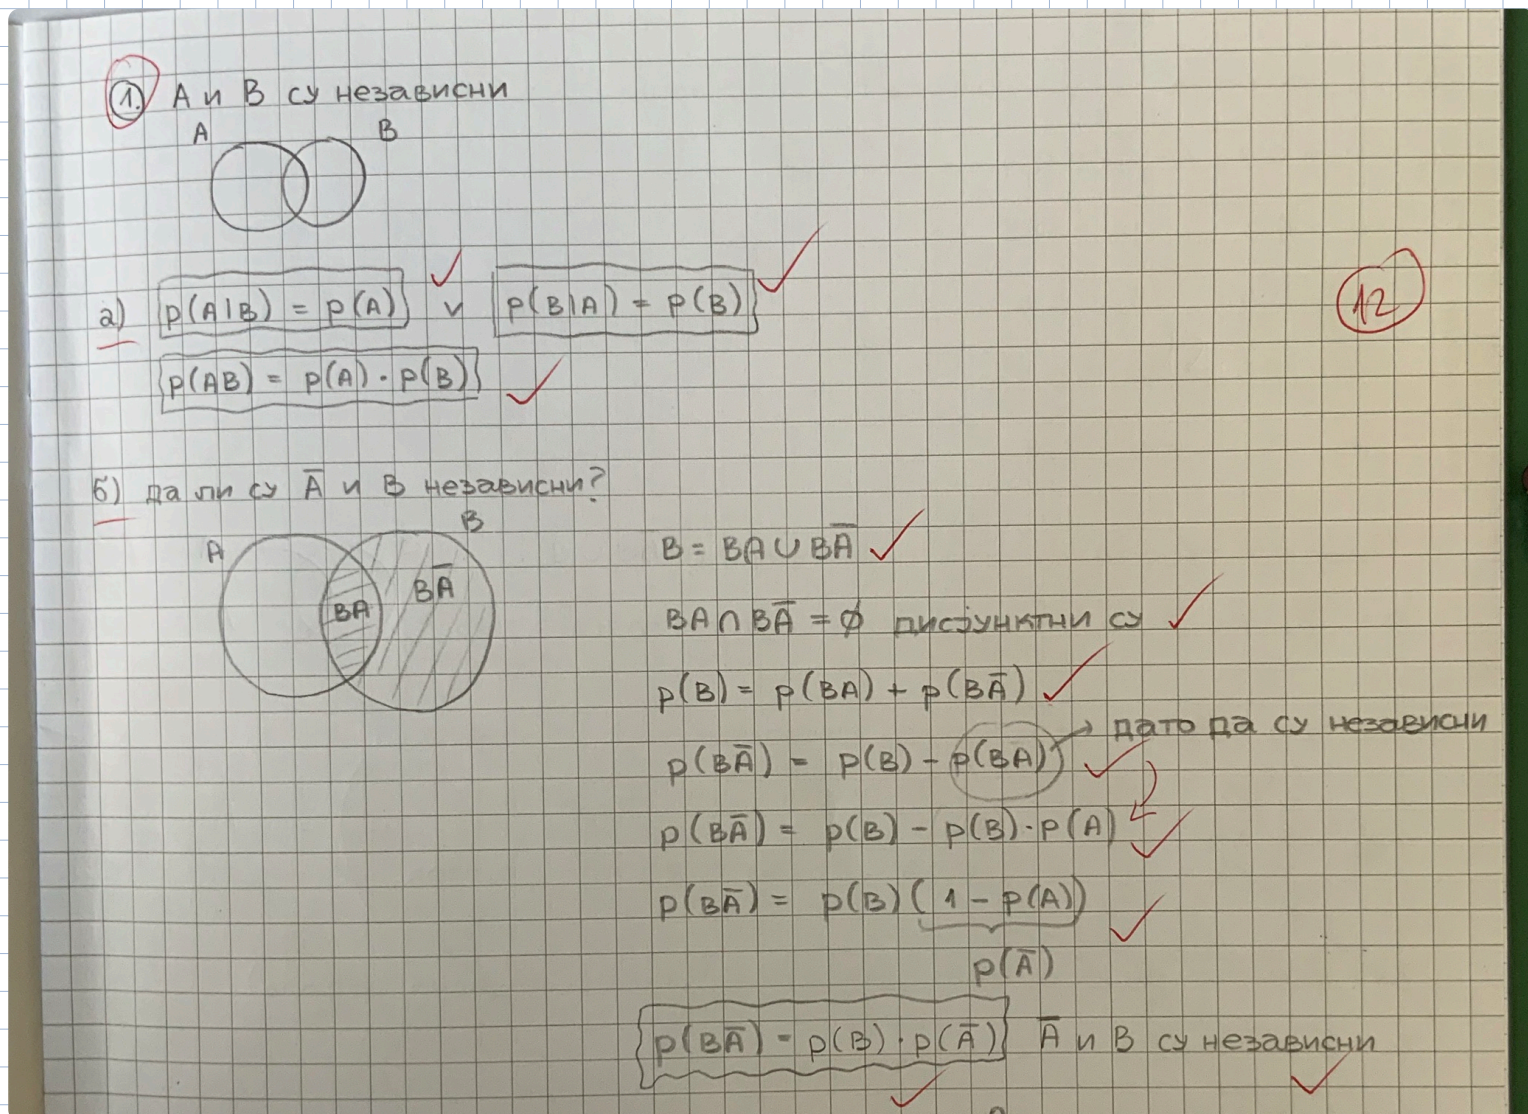 1. А и В су независни
А В
а) p(A|B) = p(A) и p(B|A) = p(B)
12
p(AB) = p(A) · p(B)
б) да ли су Ā и В независни?
А В
BA BĀ
B = BA ∪ BĀ
BA ∩ BĀ = ∅ дисјунктни су
p(B) = p(BA) + p(BĀ)
p(BĀ) = p(B) - p(BA) → дато да су независни
p(BĀ) = p(B) - p(B) · p(A)
p(BĀ) = p(B) (1 - p(A))
p(Ā)
p(BĀ) = p(B) · p(Ā) Ā и В су независни